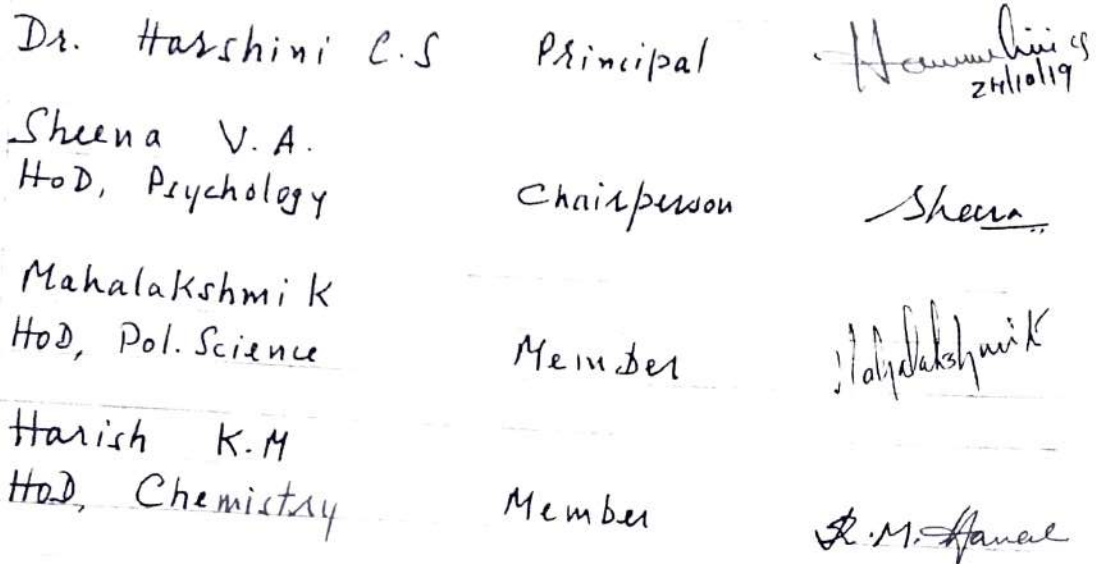 Dr. Harshini C.S Principal
24/10/19
Sheena V.A.
HoD, Psychology Chairperson Sheena
Mahalakshmi K
HoD, Pol. Science Member Mahalakshmi K
Harish K.M
HoD, Chemistry Member K.M.